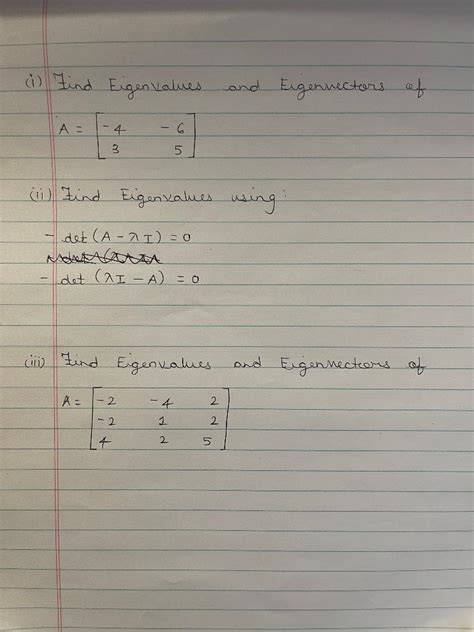 (i) Find Eigenvalues and Eigenvectors of
A = [ -4 -6
3 5 ]
(ii) Find Eigenvalues using:
- det (A - λI) = 0
- det (λI - A) = 0
(iii) Find Eigenvalues and Eigenvectors of
A = [ -2 -4 2
-2 1 2
4 2 5 ]